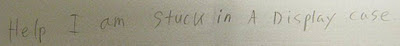 Help I am stuck in A Display case